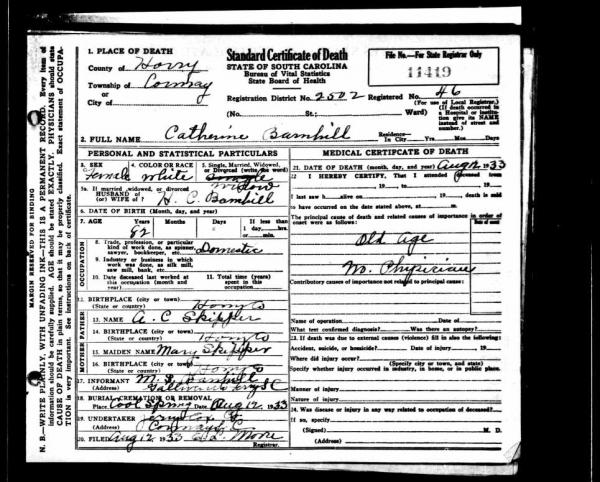 MARGIN RESERVED FOR BINDING
N. B.—WRITE PLAINLY, WITH UNFADING INK—THIS IS A PERMANENT RECORD. Every item of
information should be carefully supplied. AGE should be stated EXACTLY. PHYSICIANS should state
CAUSE OF DEATH in plain terms, so that it may be properly classified. Exact statement of OCCUPA-
TION is very important. See instructions on back of certificate.
1. PLACE OF DEATH
County of Horry
Township of Conway
or
City of
Standard Certificate of Death
STATE OF SOUTH CAROLINA
Bureau of Vital Statistics
State Board of Health
Registration District No. 2502
File No.—For State Registrar Only
11419
Registered No. 46
(For use of Local Registrar.)
(No. St.; Ward)
(If death occurred in a Hospital or institution give its NAME instead of street and number.)
2. FULL NAME Catherine Barnhill
Residence— In City Yrs. Mos. Days
PERSONAL AND STATISTICAL PARTICULARS
3. SEX Female
4. COLOR OR RACE White
5. Single, Married, Widowed, or Divorced (write the Single widow
5a. If married, widowed, or divorced
HUSBAND of
(or) WIFE of ? H. C. Barnhill
6. DATE OF BIRTH (Month, day, and year)
7. AGE Years Months Days If less than
1 day, hrs.
or min.
82
OCCUPATION
8. Trade, profession, or particular kind of work done, as spinner, sawyer, bookkeeper, etc. Domestic
9. Industry or business in which work was done, as silk mill, saw mill, bank, etc.
10. Date deceased last worked at this occupation (month and year)
11. Total time (years) spent in this occupation
12. BIRTHPLACE (city or town)
(State or country) Horry Co
FATHER
13. NAME A. C. Skipper
14. BIRTHPLACE (city or town)
(State or country) Horry Co
MOTHER
15. MAIDEN NAME Mary Skipper
16. BIRTHPLACE (city or town)
(State or country) Horry Co
17. INFORMANT Barnhill
(Address) Gallivants Ferry S C
18. BURIAL, CREMATION OR REMOVAL
Place Cool Spring Date Aug 12, 1933
19. UNDERTAKER
(Address) Conway S. C.
20. FILED Aug 12 1933 Moore
Registrar.
MEDICAL CERTIFICATE OF DEATH
21. DATE OF DEATH (month, day, and year) Aug 1933
22. I HEREBY CERTIFY, That I attended deceased from
19 to 19
I last saw h alive on 19 , death is said
to have occurred on the date stated above, at m.
The principal cause of death and related causes of importance in order of
onset were as follows:
Date of onset
Old Age
No. Physician
Contributory causes of importance not related to principal cause:
Name of operation Date of
What test confirmed diagnosis? Was there an autopsy?
23. If death was due to external causes (violence) fill in also the following:
Accident, suicide, or homicide? Date of injury
Where did injury occur?
(Specify city or town, and state)
Specify whether injury occurred in industry, in home, or in public place.
Manner of injury
Nature of injury
24. Was disease or injury in any way related to occupation of deceased?
If so, specify
(Signed) M. D.
(Address)